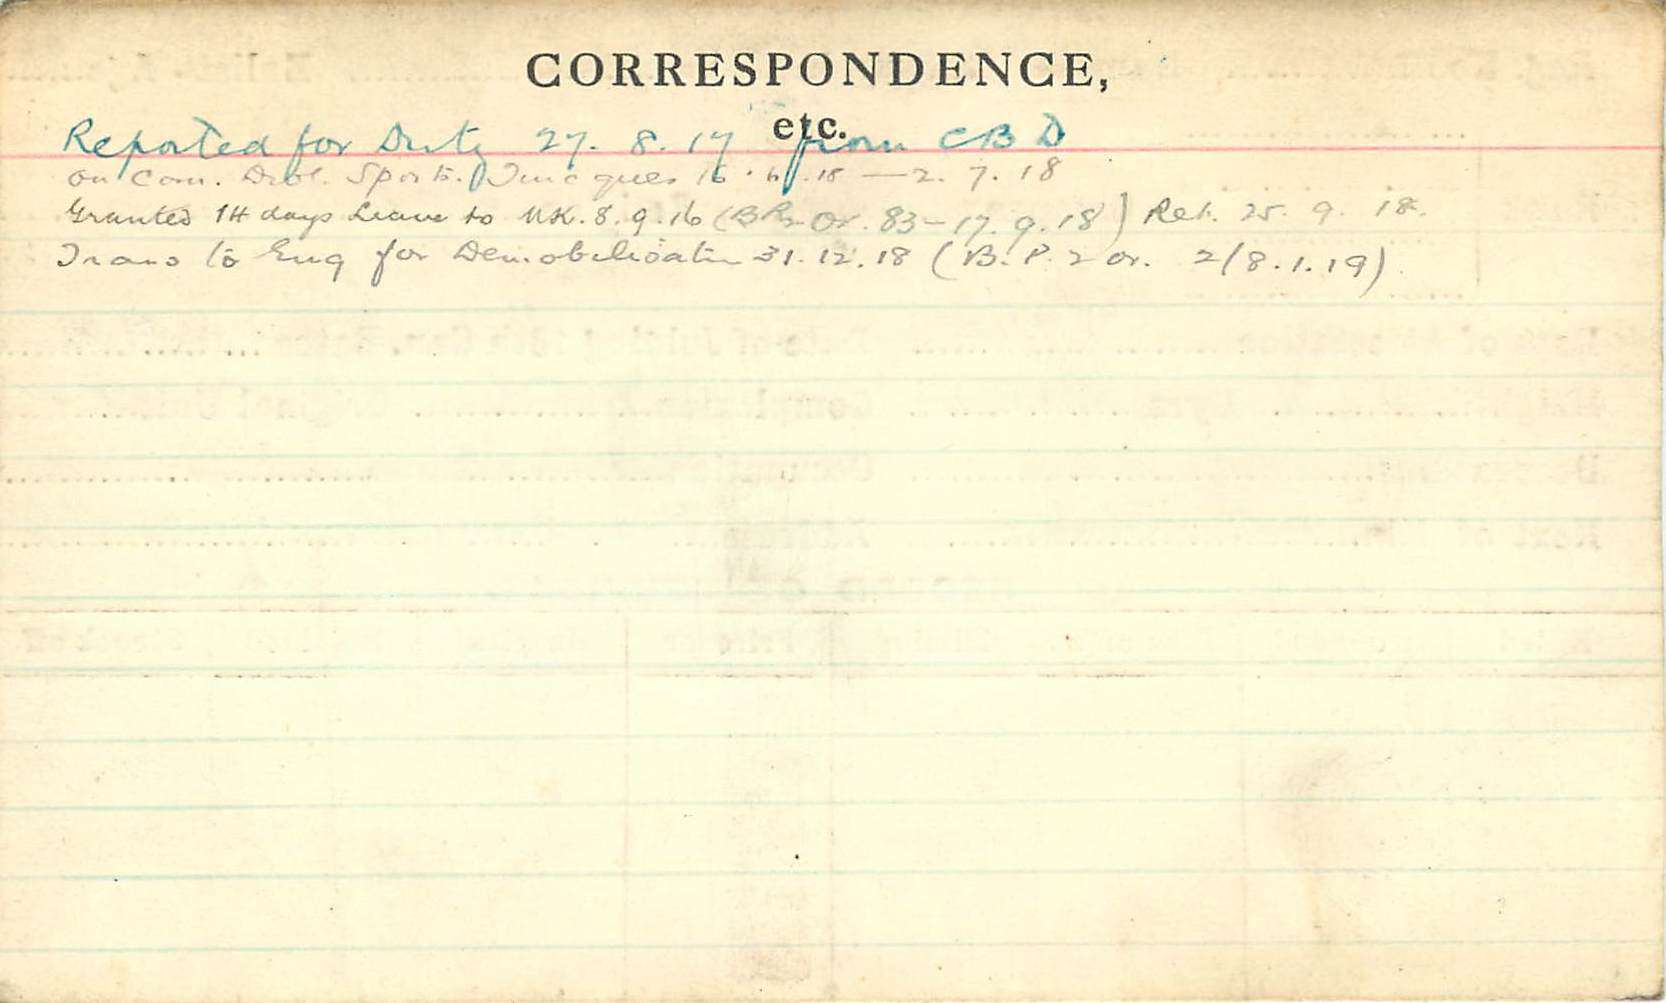 CORRESPONDENCE,
etc.
Reported for Duty 27. 8. 17 from CBD
on Com. Divl. Sports. Tincques 16.6.18 — 2. 7. 18
Granted 14 days Leave to UK. 8. 9. 18 (BP2 Or. 83 – 17. 9. 18) Ret. 25. 9. 18.
Trans to Eng for Demobilisation 31. 12. 18 (B. P. 2 or. 2/8.1.19)